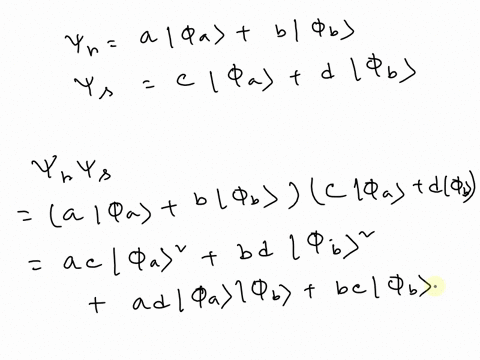 Ψr = a |Φa⟩ + b |Φb⟩
Ψs = c |Φa⟩ + d |Φb⟩
Ψr Ψs
= (a |Φa⟩ + b |Φb⟩) (c |Φa⟩ + d |Φb⟩)
= ac |Φa⟩² + bd |Φb⟩²
+ ad |Φa⟩ |Φb⟩ + bc |Φb⟩